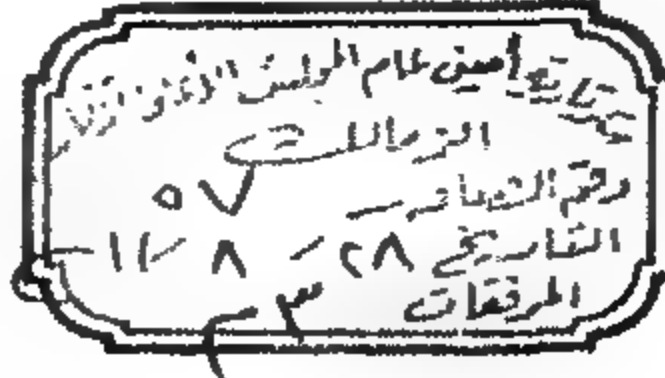 سكرتارية أمين عام المجلس الأعلى
الزمالك
رقم الصادر ٥٧
التاريخ ٢٨ - ٨ -
المرفقات ٣